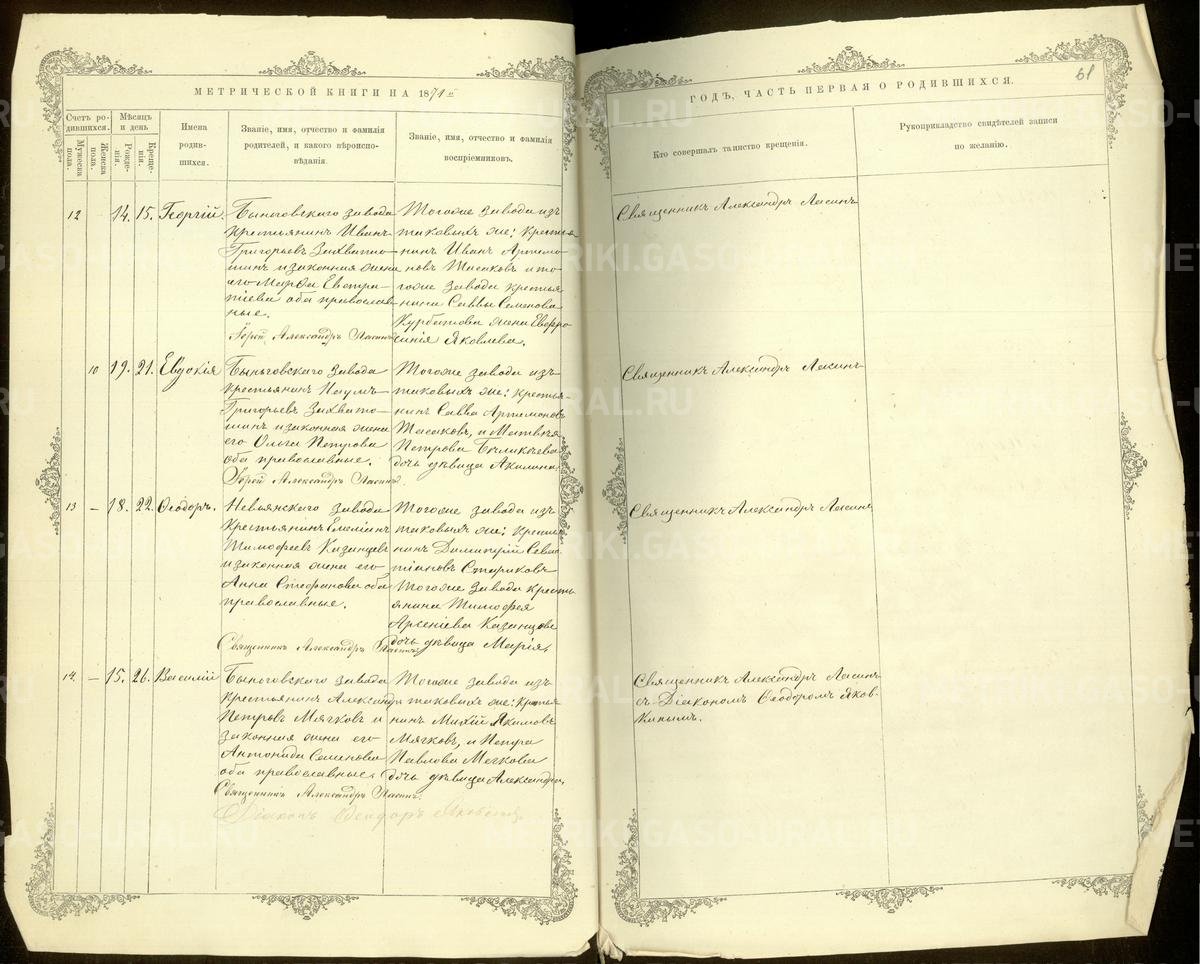 МЕТРИЧЕСКОЙ КНИГИ НА 1874й
ГОДЪ, ЧАСТЬ ПЕРВАЯ О РОДИВШИХСЯ.
61
Счетъ ро-
дившихся.
Мужеска
пола.
Женска
пола.
Мѣсяцъ
и день
Рожде-
нія.
Креще-
нія.
Имена
родив-
шихся.
Званіе, имя, отчество и фамилія
родителей, и какого вѣроиспо-
вѣданія.
Званіе, имя, отчество и фамилія
воспріемниковъ.
Кто совершалъ таинство крещенія.
Рукоприкладство свидѣтелей записи
по желанію.
12
14. 15. Георгій.
Быньговскаго завода
крестьянинъ Иванъ
Григорьевъ Захвато-
шинъ и законная жена
его Марфа Евстра-
тіева оба православ-
ные.
Іерей Александръ Ласинъ
Тогоже завода изъ
таковыхъ же: крестья-
нинъ Иванъ Артемо-
новъ Шасаковъ и то-
гоже завода крестья-
нина Саввы Семенова
Курбатова жена Евфро-
синія Яковлева.
Священникъ Александръ Ласинъ
10 19. 21. Евдокія
Быньговскаго завода
крестьянинъ Наумъ
Григорьевъ Захвато-
шинъ и законная жена
его Ольга Петрова
оба православные.
Іерей Александръ Ласинъ.
Тогоже завода изъ
таковыхъ же: крестья-
нинъ Савва Артемоновъ
Шасаковъ, и Матвѣя
Петрова
дочь дѣвица Акилина.
Священникъ Александръ Ласинъ
13 – 18. 22. Ѳеодоръ.
Невьянскаго завода
крестьянинъ Емеліанъ
Тимофеевъ Казанцевъ
и законная жена его
Анна Стефанова оба
православные.
Священникъ Александръ Ласинъ
Тогоже завода изъ
таковыхъ же: крестья-
нинъ Димитрій Севас-
тіановъ Стариковъ
Тогоже завода кресть
янина Тимофея
Арсеніева Казанцова
дочь дѣвица Марія.
Священникъ Александръ Ласинъ
14. – 15. 26. Василій
Быньговскаго завода
крестьянинъ Александръ
Петровъ Мягковъ и
законная жена его
Антонида Семенова
оба православные.
Священникъ Александръ Ласинъ.
Діаконъ Ѳеодоръ
Тогоже завода изъ
таковыхъ же: крестья
нинъ Якимовъ
Мягковъ, и Петра
Павлова Мягкова
дочь дѣвица Александра.
Священникъ Александръ Ласинъ
съ Діакономъ Ѳеодоромъ Яков-
кинымъ.
METRIKI.GASO-URAL.RU